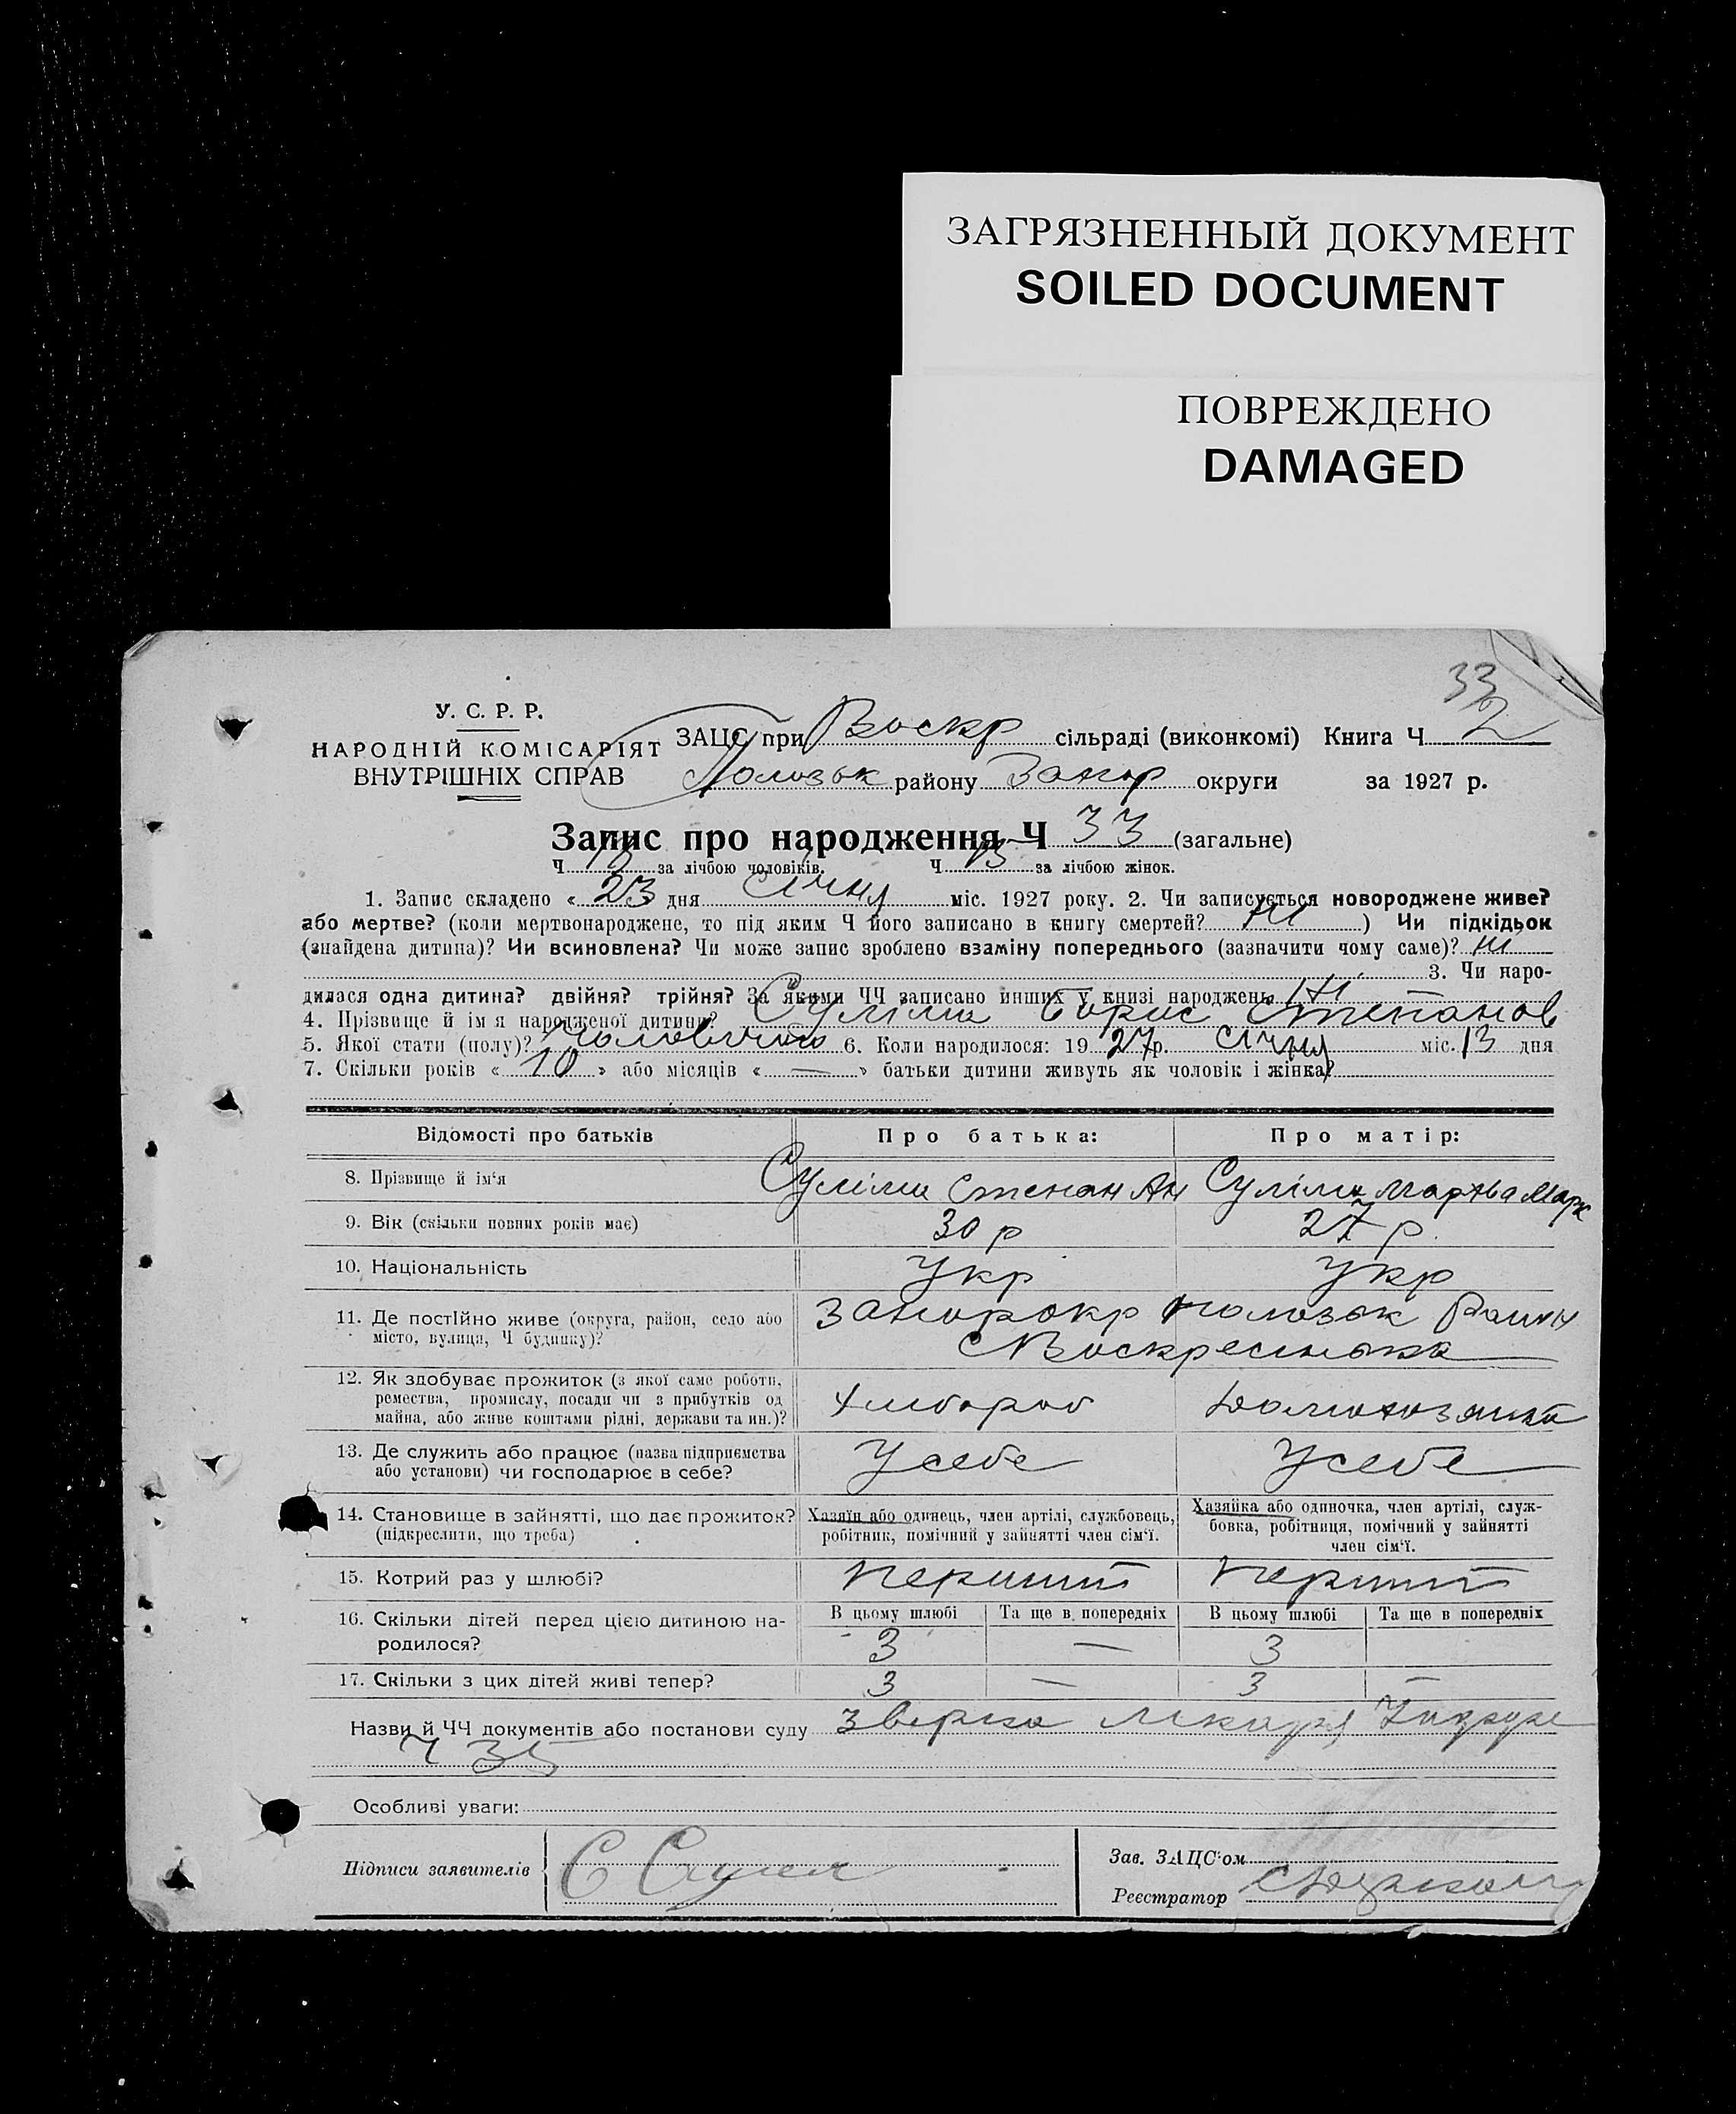 ЗАГРЯЗНЕННЫЙ ДОКУМЕНТ
SOILED DOCUMENT
ПОВРЕЖДЕНО
DAMAGED
33
У. С. Р. Р.
НАРОДНІЙ КОМІСАРІЯТ
ВНУТРІШНІХ СПРАВ
ЗАЦС при Воскр сільраді (виконкомі) Книга Ч 2
Полозьк району Запор округи за 1927 р.
Запис про народження Ч 33 (загальне)
Ч за лічбою чоловіків. Ч за лічбою жінок.
1. Запис складено « 23 дня січня міс. 1927 року. 2. Чи записується новороджене живе?
або мертве? (коли мертвонароджене, то під яким Ч його записано в книгу смертей? ні ) Чи підкідьок
(знайдена дитина)? Чи всиновлена? Чи може запис зроблено взаміну попереднього (зазначити чому саме)? ні
3. Чи наро-
дилася одна дитина? двійня? трійня? За якими ЧЧ записано инших у книзі народжень ні
4. Прізвище й ім я народженої дитини? Суліма Борис Степанов
5. Якої стати (полу)? Чоловічої 6. Коли народилося: 19 27 р. січня міс. 13 дня
7. Скільки років « 10 » або місяців « — » батьки дитини живуть як чоловік і жінка?
Відомості про батьків Про батька: Про матір:
8. Прізвище й ім'я Суліма Степан Ан Суліма Мархва Марк
9. Вік (скільки повних років має) 30 р 27 р.
10. Національність Укр Укр
11. Де постійно живе (округа, район, село або
місто, вулиця, Ч будинку)?
Запорокр Полозьк Район
с Воскресенька
12. Як здобуває прожиток (з якої саме роботи,
ремества, промислу, посади чи з прибутків од
майна, або живе коштами рідні, держави та ин.)?
Хлібороб Домохозяйка
13. Де служить або працює (назва підприємства
або установи) чи господарює в себе?
У себе У себе
14. Становище в зайнятті, що дає прожиток?
(підкреслити, що треба)
Хазяїн або одинець, член артілі, службовець,
робітник, помічний у зайнятті член сім'ї.
Хазяйка або одиночка, член артілі, служ-
бовка, робітниця, помічний у зайнятті
член сім'ї.
15. Котрий раз у шлюбі? перший перший
16. Скільки дітей перед цією дитиною на-
родилося?
В цьому шлюбі Та ще в попередніх В цьому шлюбі Та ще в попередніх
3 — 3
17. Скільки з цих дітей живі тепер? 3 — 3 —
Назви й ЧЧ документів або постанови суду
Ч 35
Особливі уваги:
Підписи заявителів
Зав. ЗАЦС'ом
Реєстратор